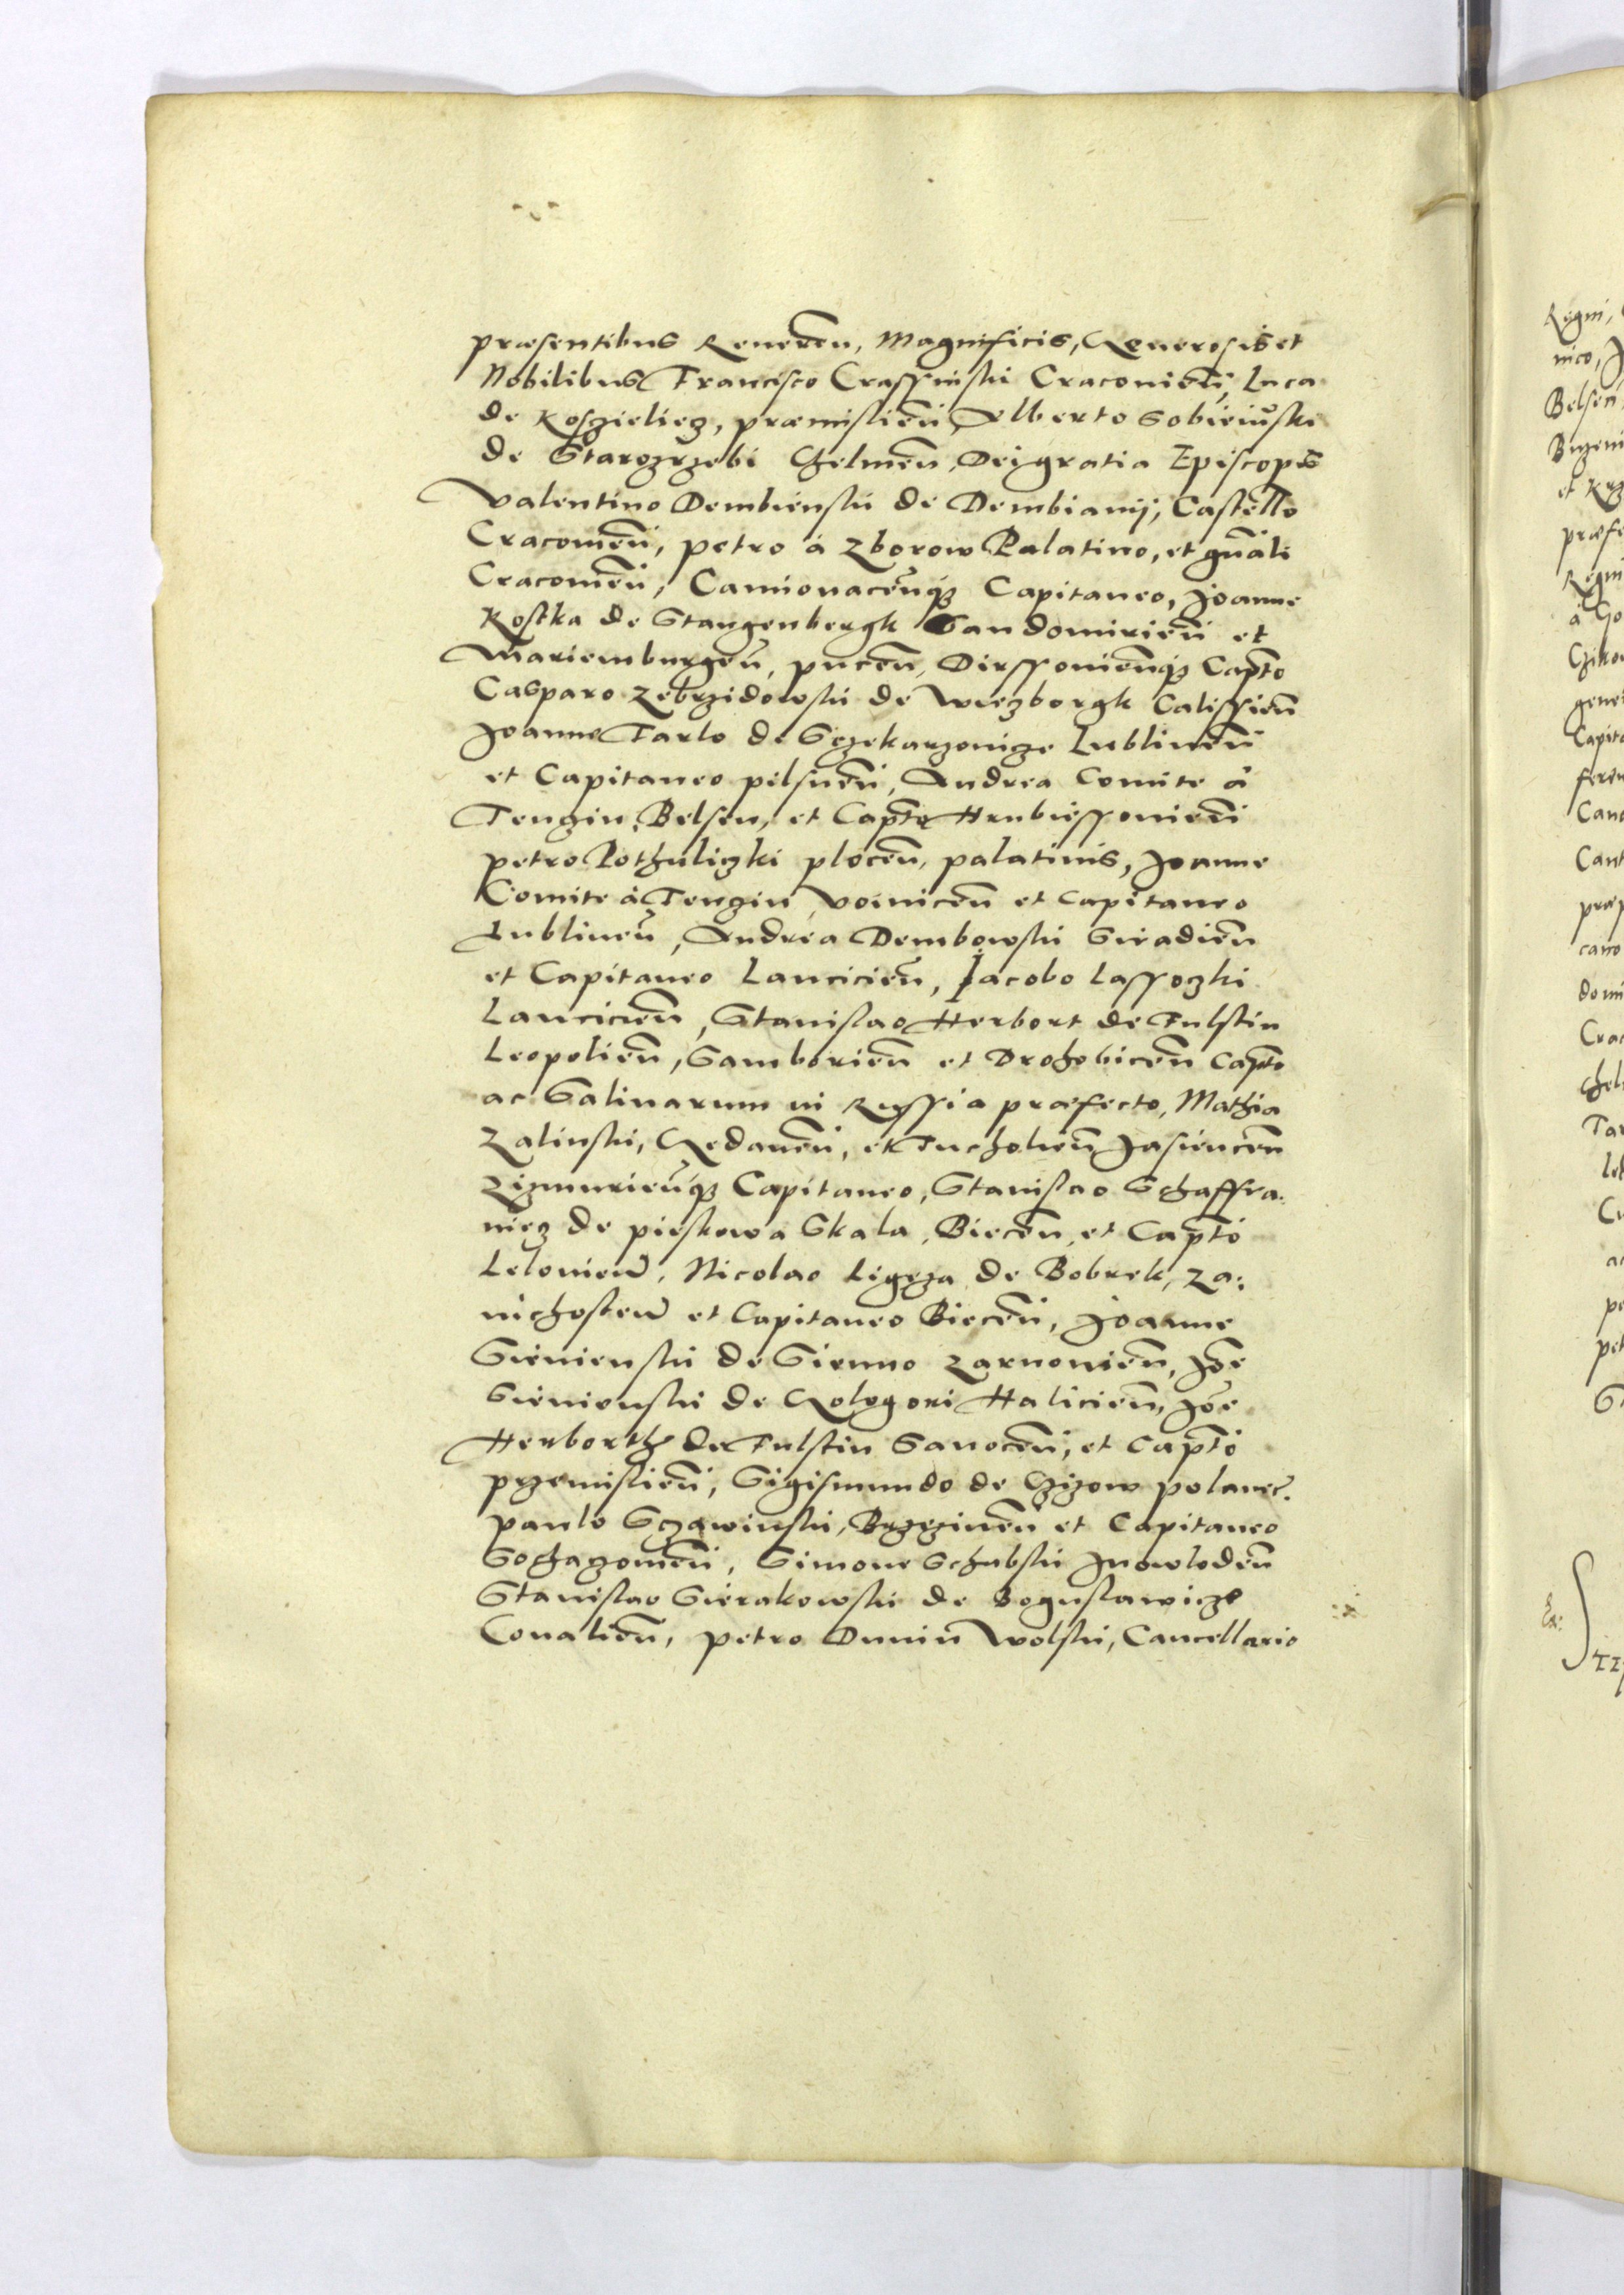 præsentibus Reueren, Magnificis, Generosis et
Nobilibus Francisco Crassinski Cracouien, Luca
de Koszieliecz, præmislien, Alberto Sobieiuski
de Starozrzebi Chelmen, Dei gratia Episcopis
Valentino Dembienski de Dembianij, Castello
Cracouien, petro à Zborow Palatino, et gnali
Cracouien, Camionacenq₃ Capitaneo, Joanne
Kostka de Stangenbergk Sandomirien et
Mariemburgen, pucen, Dirssouienq₃ Capto
Casparo Zebrzidowski de Wiezborgk Calissien
Joanne Tarlo de Sczekarzouicze Lublinen
et Capitaneo pilsnen, Andrea Comite à
Tenzin, Belsen, et Capto Hrubiessouien
petro Pothuliczki plocen, palatinis, Joanne
Comite à Tenzin, Voinicen et Capitaneo
Lublinen, Andrea Dembowski Siradien
et Capitaneo Lancicien, Jacobo Lassoczki
Lancicien, Stanislao Herbort de Fulstin
Leopolien, Samborien et Drohobicen Capto
ac Salinarum in Russia præfecto, Mathia
Zalinski, Gedanen, et Tucholien Jasiencen
Zignurienq₃ Capitaneo, Stanislao Schaffra:
niecz de pieskowa Skala, Biecen, et Capto
Lelouien, Nicolao Ligęza de Bobrek, Za:
uichosten et Capitaneo Biecen, Joanne
Sienienski de Sienno Zarnouien, Joe
Sienienski de Gologori Halicien, Joe
Herborth de Fulstin Sanocen, et Capto
przemislien, Sigismundo de Czizow polanec.
paulo Sczawinski, Brzezinen et Capitaneo
Sochaczouien, Simone Schubski Inowloden
Stanislao Sierakowski de Boguslawicze
Coualien, petro Dunin Wolski, Cancellario
Belsen